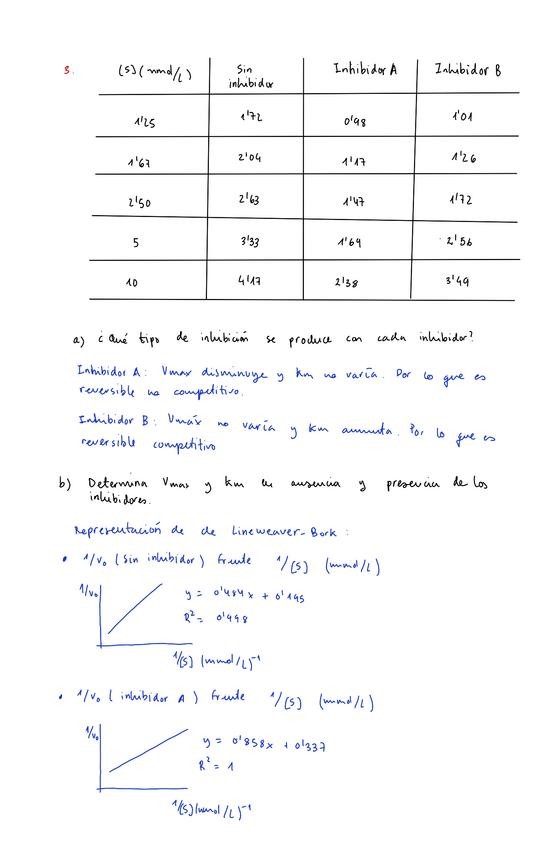 3.
[S] (mmol/L) Sin inhibidor Inhibidor A Inhibidor B
1'25 1'72 0'98 1'01
1'67 2'04 1'17 1'26
2'50 2'63 1'47 1'72
5 3'33 1'69 2'56
10 4'17 2'38 3'49
a) ¿Qué tipo de inhibición se produce con cada inhibidor?
Inhibidor A: Vmax disminuye y Km no varía. Por lo que es
reversible no competitivo.
Inhibidor B: Vmáx no varía y Km aumenta. Por lo que es
reversible competitivo
b) Determina Vmax y Km en ausencia y presencia de los
inhibidores.
Representación de de Lineweaver-Bork:
• 1/v₀ (sin inhibidor) frente 1/[S] (mmol/L)
1/v₀
y = 0'484x + 0'195
R² = 0'998
1/[S] (mmol/L)⁻¹
• 1/v₀ (inhibidor A) frente 1/[S] (mmol/L)
1/v₀
y = 0'858x + 0'337
R² = 1
1/[S] (mmol/L)⁻¹